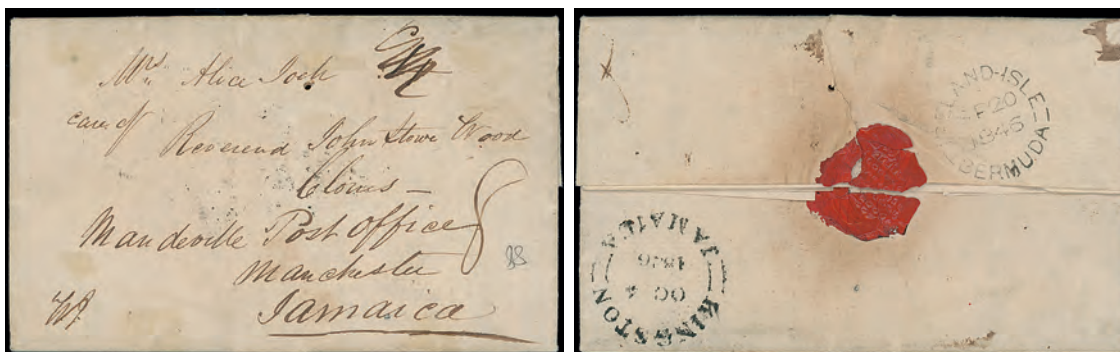 Mrs. Alice Jock
care of
Reverend John Stowe Wood
Mandeville Post Office
Manchester
Jamaica
8
88
LAND-ISLE
20
1846
BERMUDA
KINGSTON
JAMAICA
OC 4
1846